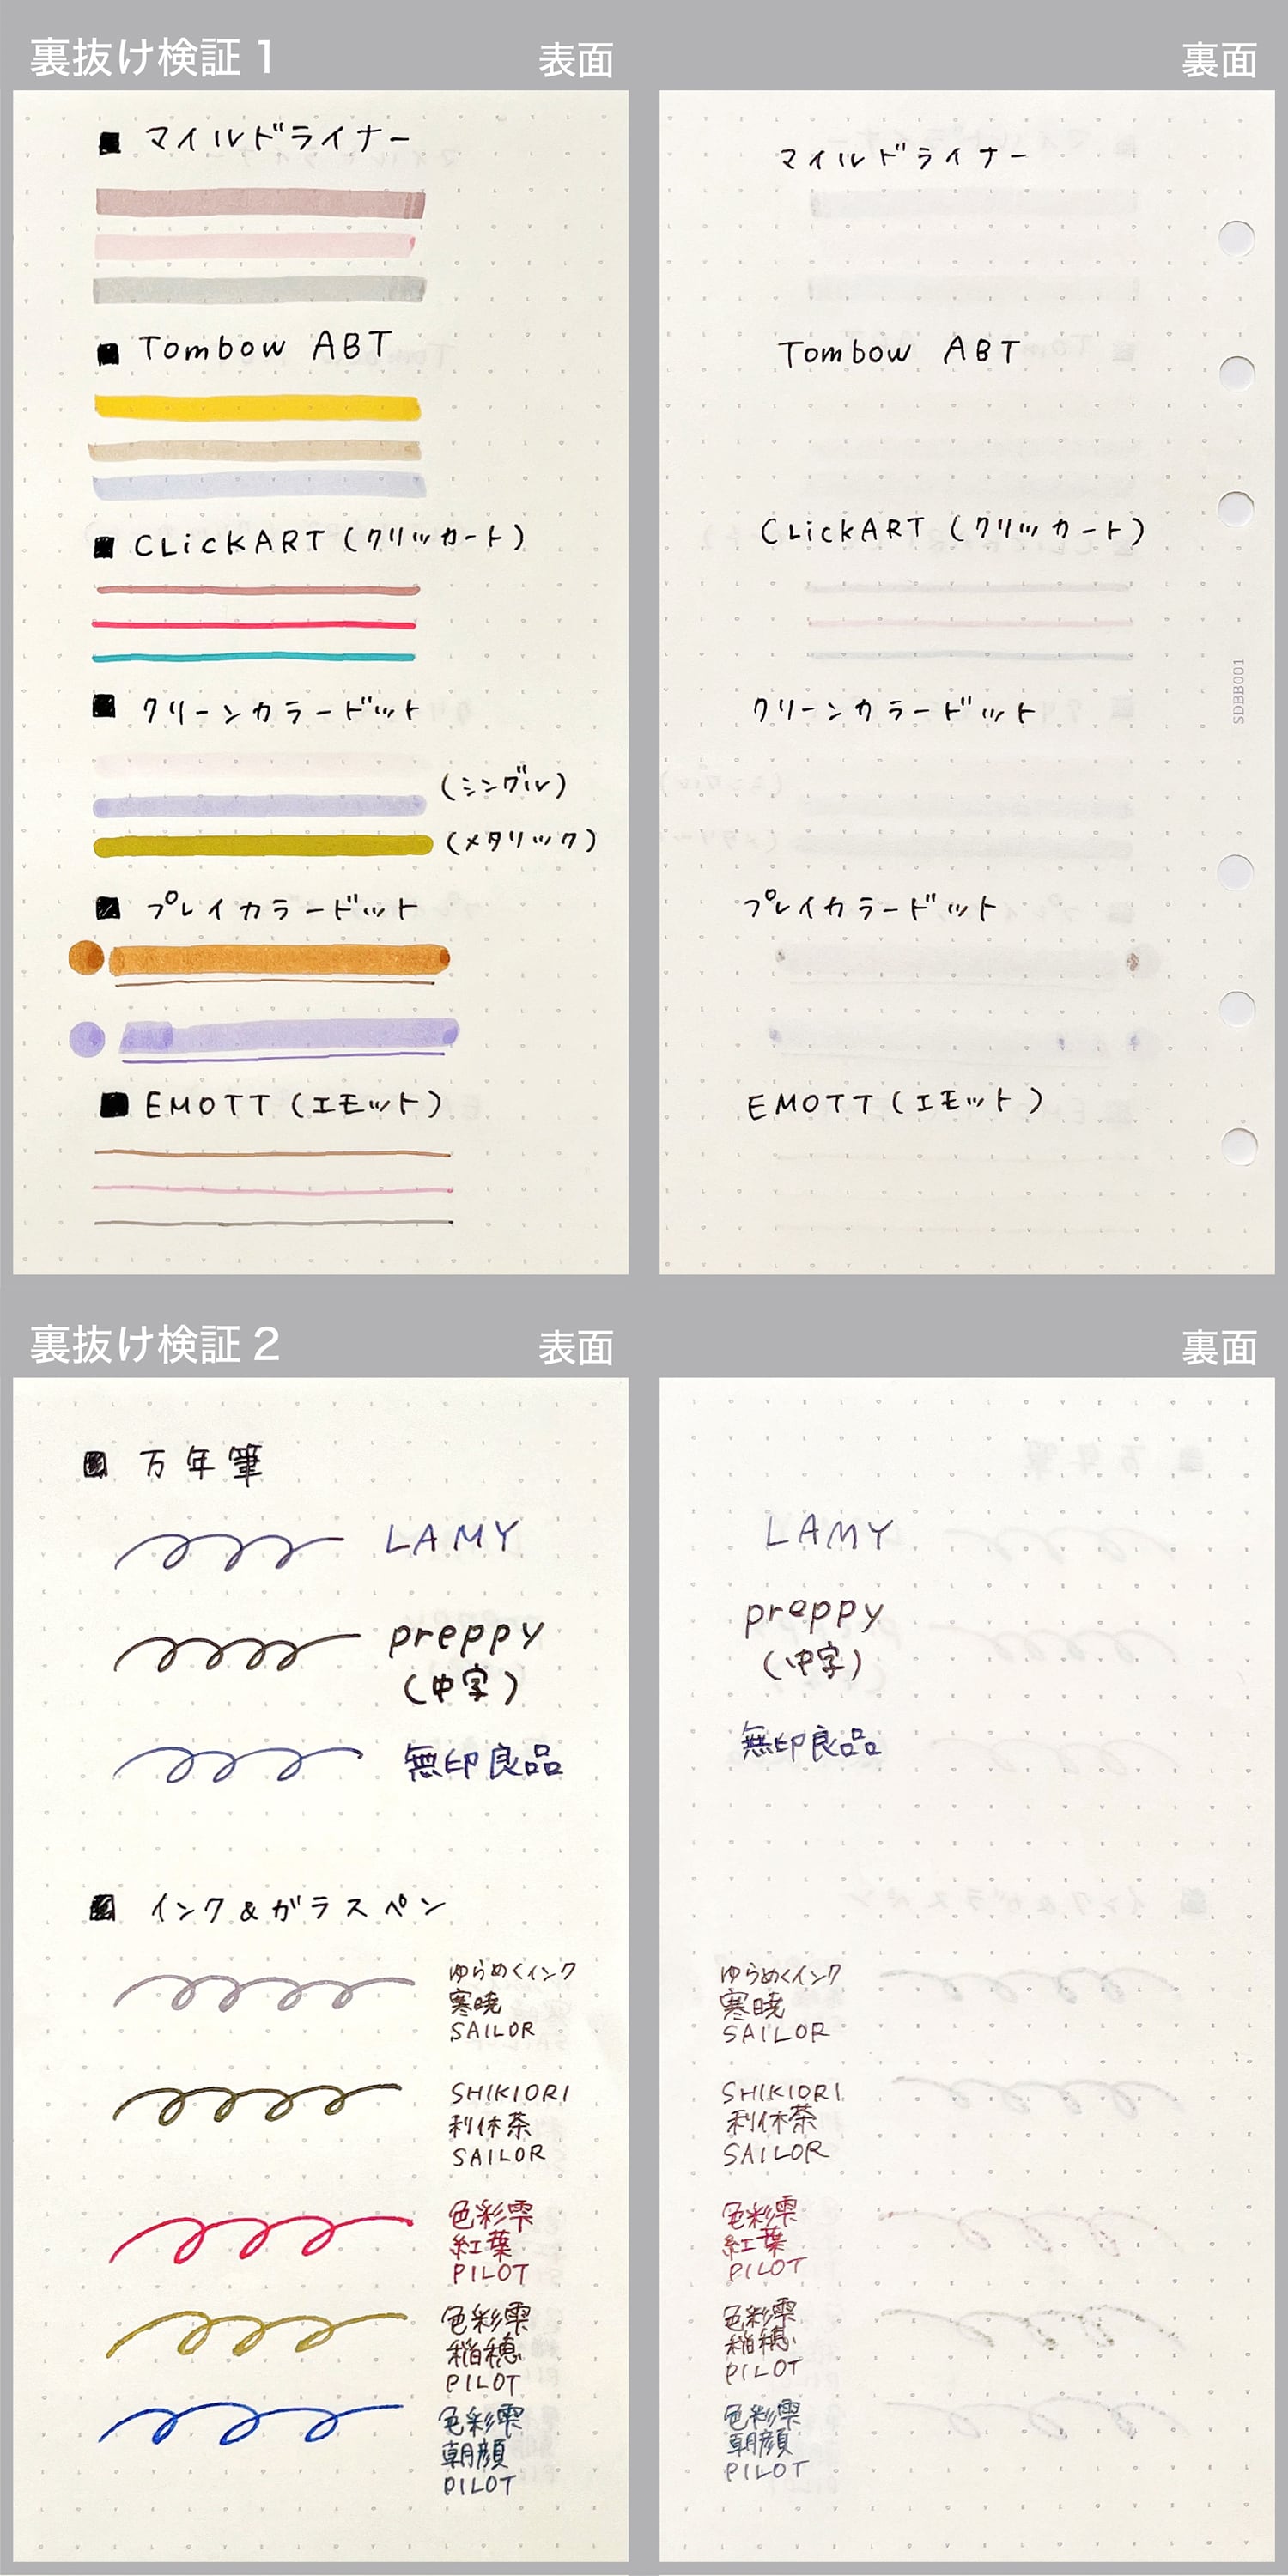 裏抜け検証1
表面
裏面
マイルドライナー
Tombow ABT
CLickART（クリッカート）
クリーンカラードット
（シングル）
（メタリック）
プレイカラードット
EMOTT（エモット）
マイルドライナー
Tombow ABT
CLickART（クリッカート）
クリーンカラードット
プレイカラードット
EMOTT（エモット）
SDBB001
裏抜け検証2
表面
裏面
万年筆
LAMY
preppy
（中字）
無印良品
インク&ガラスペン
ゆらめくインク
寒暁
SAILOR
SHIKIORI
利休茶
SAILOR
色彩雫
紅葉
PILOT
色彩雫
稲穂
PILOT
色彩雫
朝顔
PILOT
LAMY
preppy
（中字）
無印良品
ゆらめくインク
寒暁
SAILOR
SHIKIORI
利休茶
SAILOR
色彩雫
紅葉
PILOT
色彩雫
稲穂
PILOT
色彩雫
朝顔
PILOT